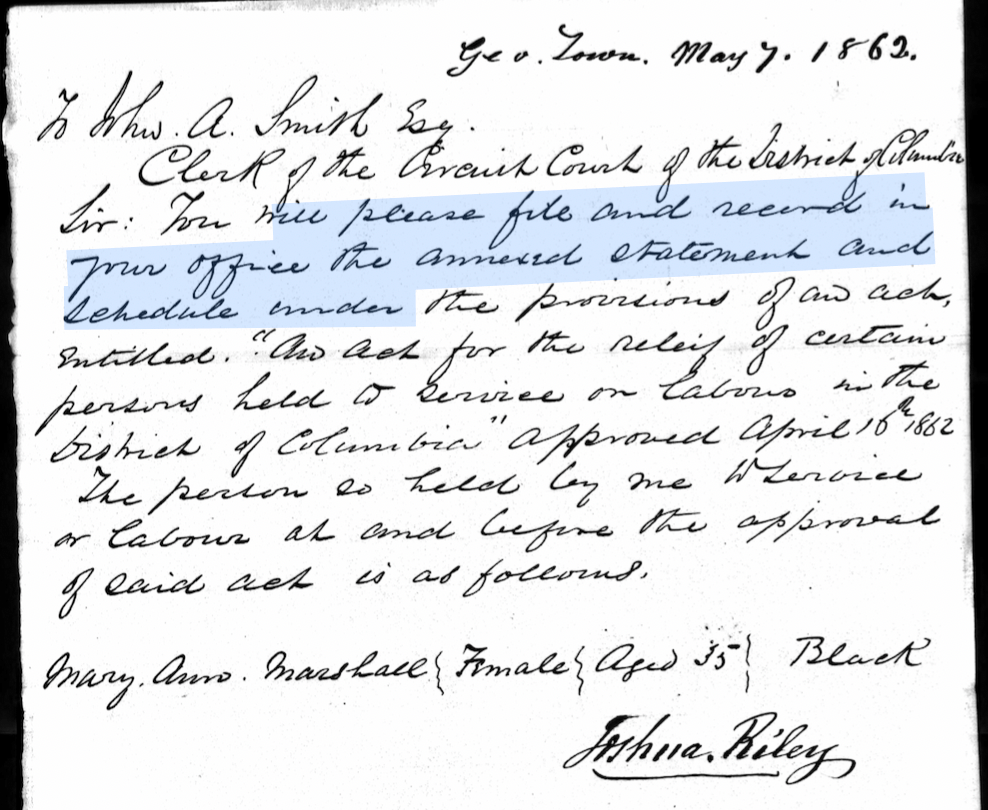 Geo. Town. May 7. 1862.
To John. A. Smith Esq.
Clerk of the Circuit Court of the District of Columbia
Sir: You will please file and record in
your office the annexed statement and
schedule under the provisions of an act,
entitled. "An Act for the releif of certain
persons held to service or labour in the
District of Columbia" approved April 16th 1862
The person so held by me to service
or labour at and before the approval
of said act is as follows.
Mary. Ann. Marshall { Female } Aged 35 } Black
Joshua. Riley